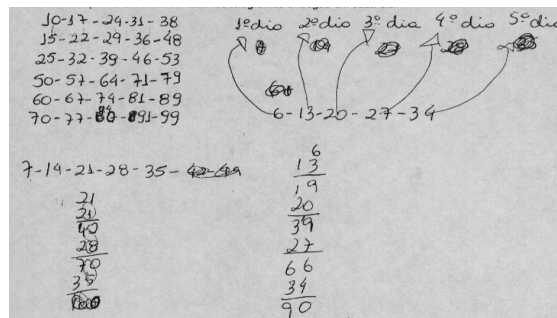 10-17-24-31-38
15-22-29-36-48
25-32-39-46-53
50-57-64-71-79
60-67-74-81-89
70-77-84-891-99
1º dia 2º dia 3º dia 4º dia 5º dia
6-13-20-27-34
7-14-21-28-35-
21
21
42
28
70
35
6
13
19
20
39
27
66
34
90